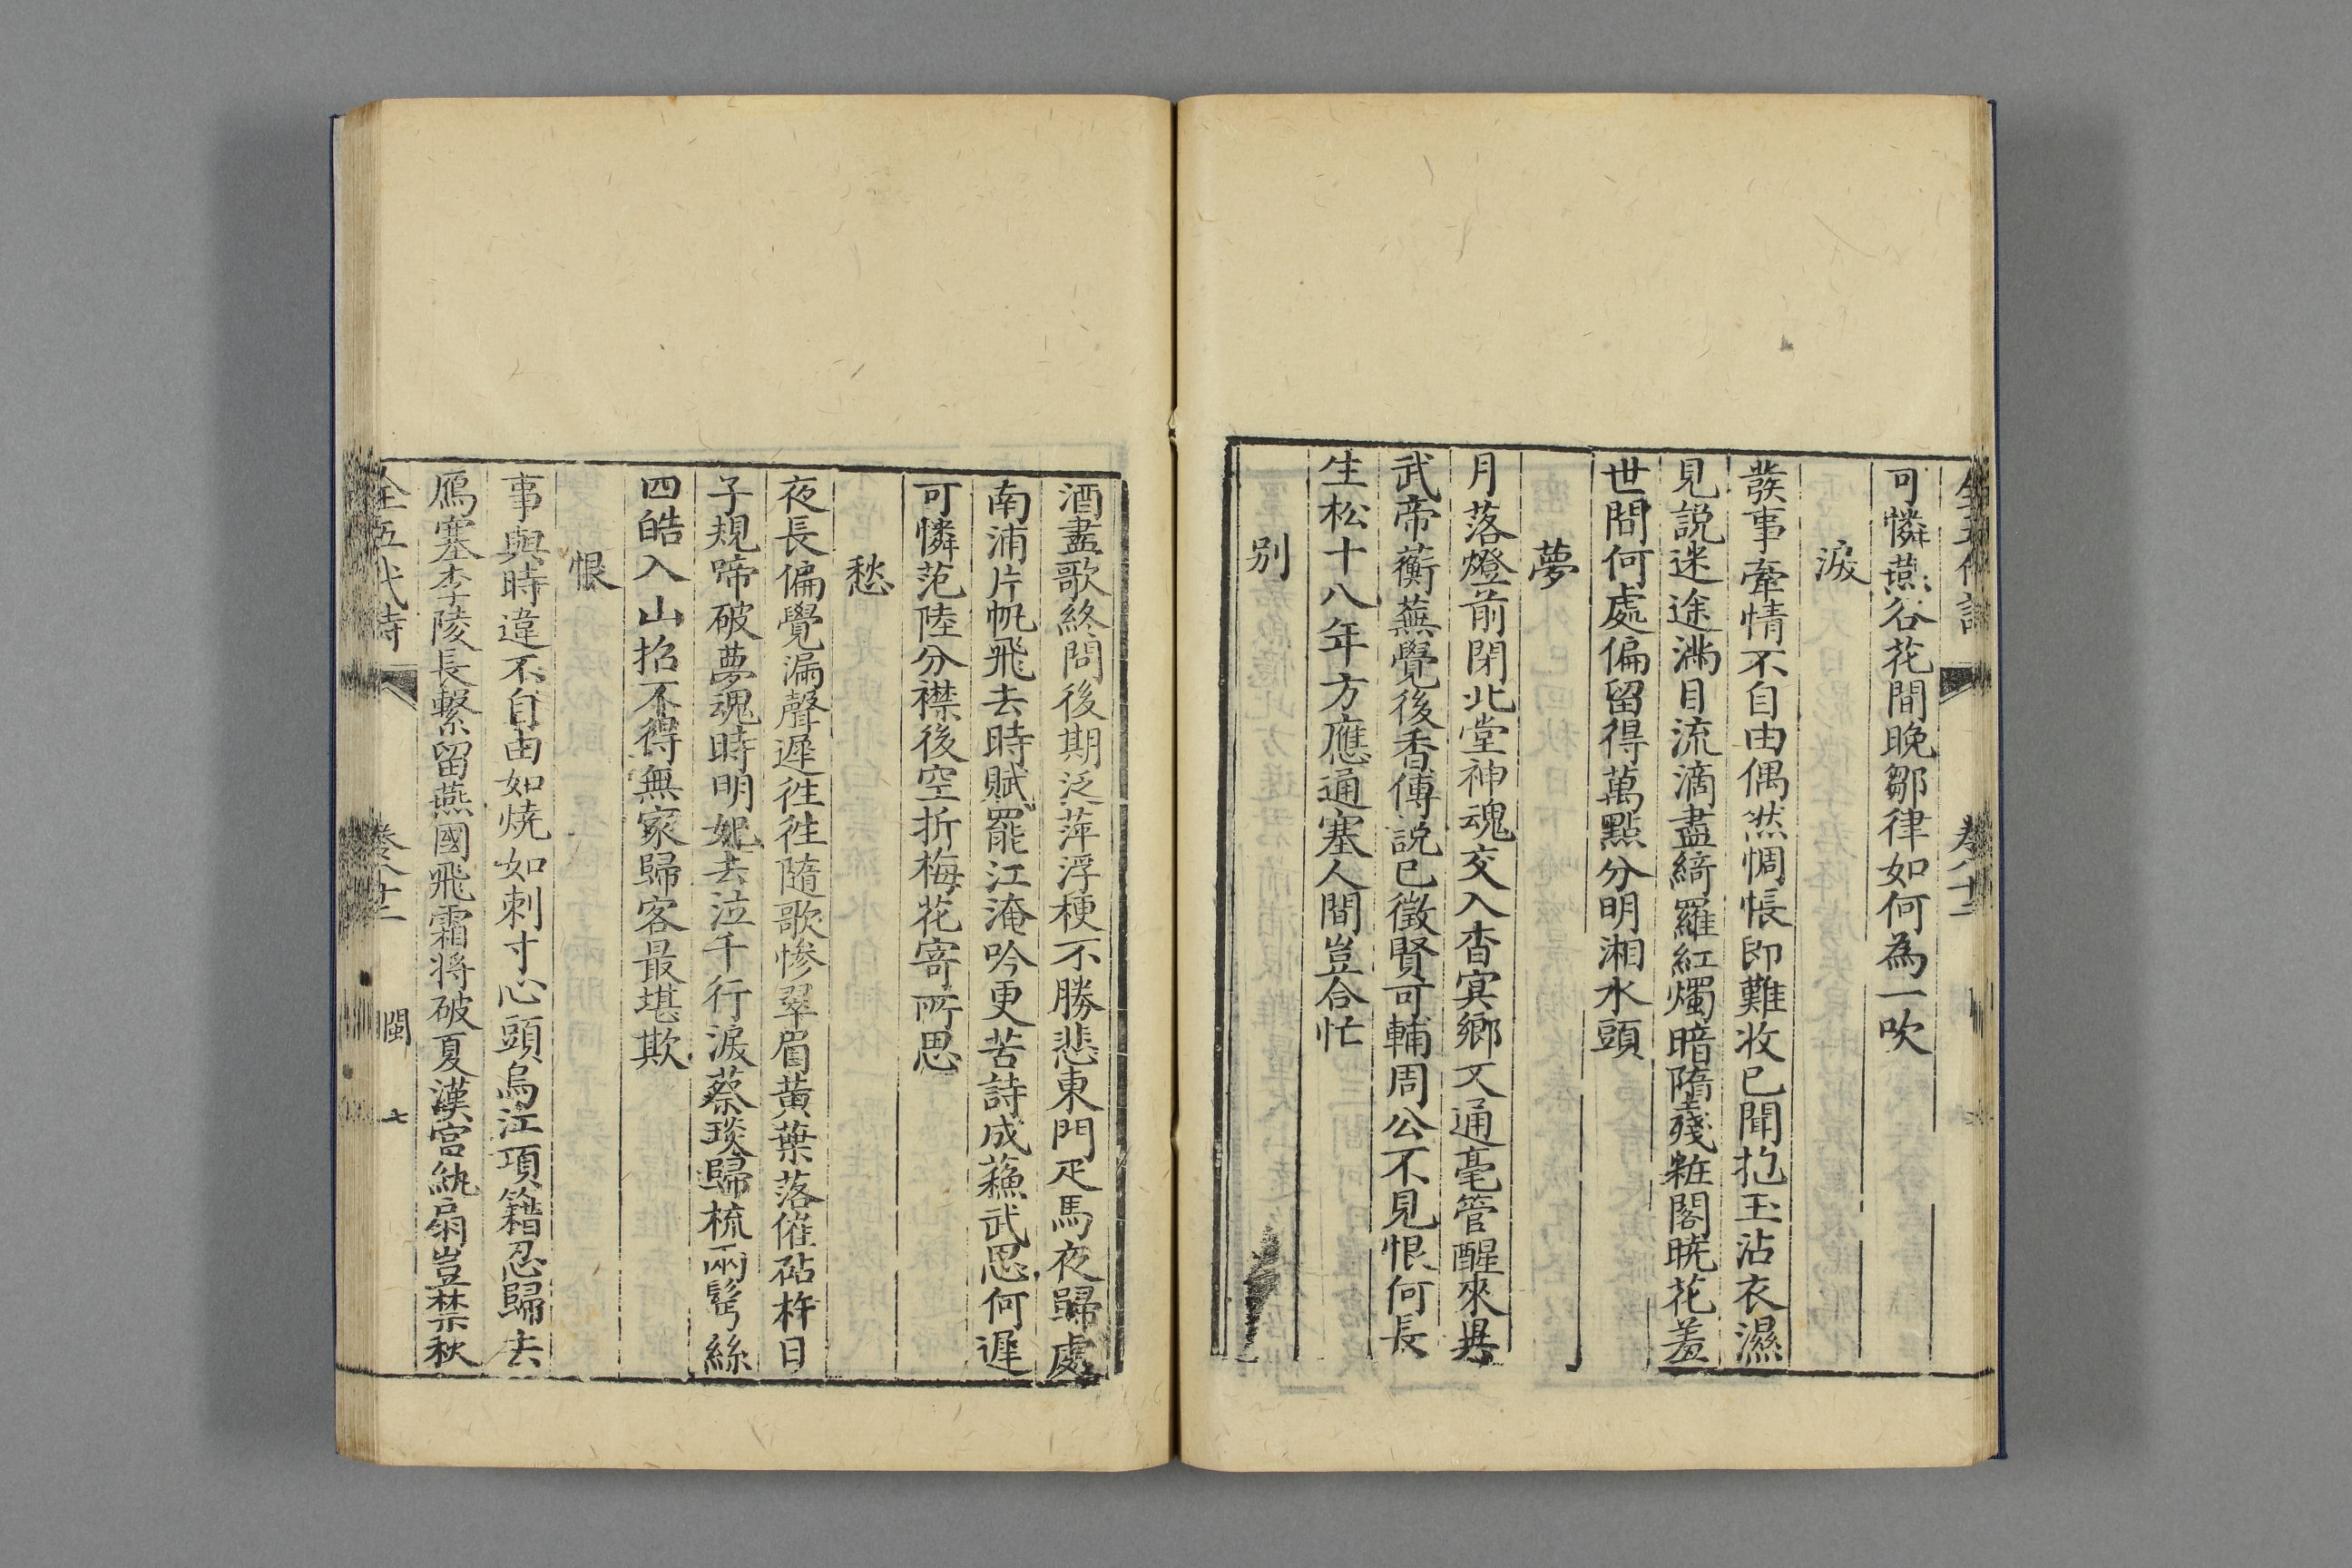 全五代詩 卷八十二
可憐燕谷花間晚鄒律如何為一吹
淚
發事牽情不自由偶然惆悵即難收已聞抱玉沾衣濕
見說迷途滿目流滴盡綺羅紅燭暗墮殘粧閣曉花羞
世間何處偏留得萬點分明湘水頭
夢
月落燈前閉北堂神魂交入杳冥鄉文通毫管醒來異
武帝蘅蕪覺後香傅說已徵賢可輔周公不見恨何長
生松十八年方應通塞人間豈合忙
別
酒盡歌終問後期泛萍浮梗不勝悲東門疋馬夜歸處
南浦片帆飛去時賦罷江淹吟更苦詩成蘇武思何遲
可憐范陸分襟後空折梅花寄所思
愁
夜長偏覺漏聲遲往往隨歌慘翠眉黃葉落催砧杵日
子規啼破夢魂時明妃去泣千行淚蔡琰歸梳兩鬢絲
四皓入山招不得無家歸客最堪欺
恨
事與時違不自由如燒如刺寸心頭烏江項籍忍歸去
鴈塞李陵長繫留燕國飛霜將破夏漢宮紈扇豈禁秋
全五代詩 卷八十二 閩 七